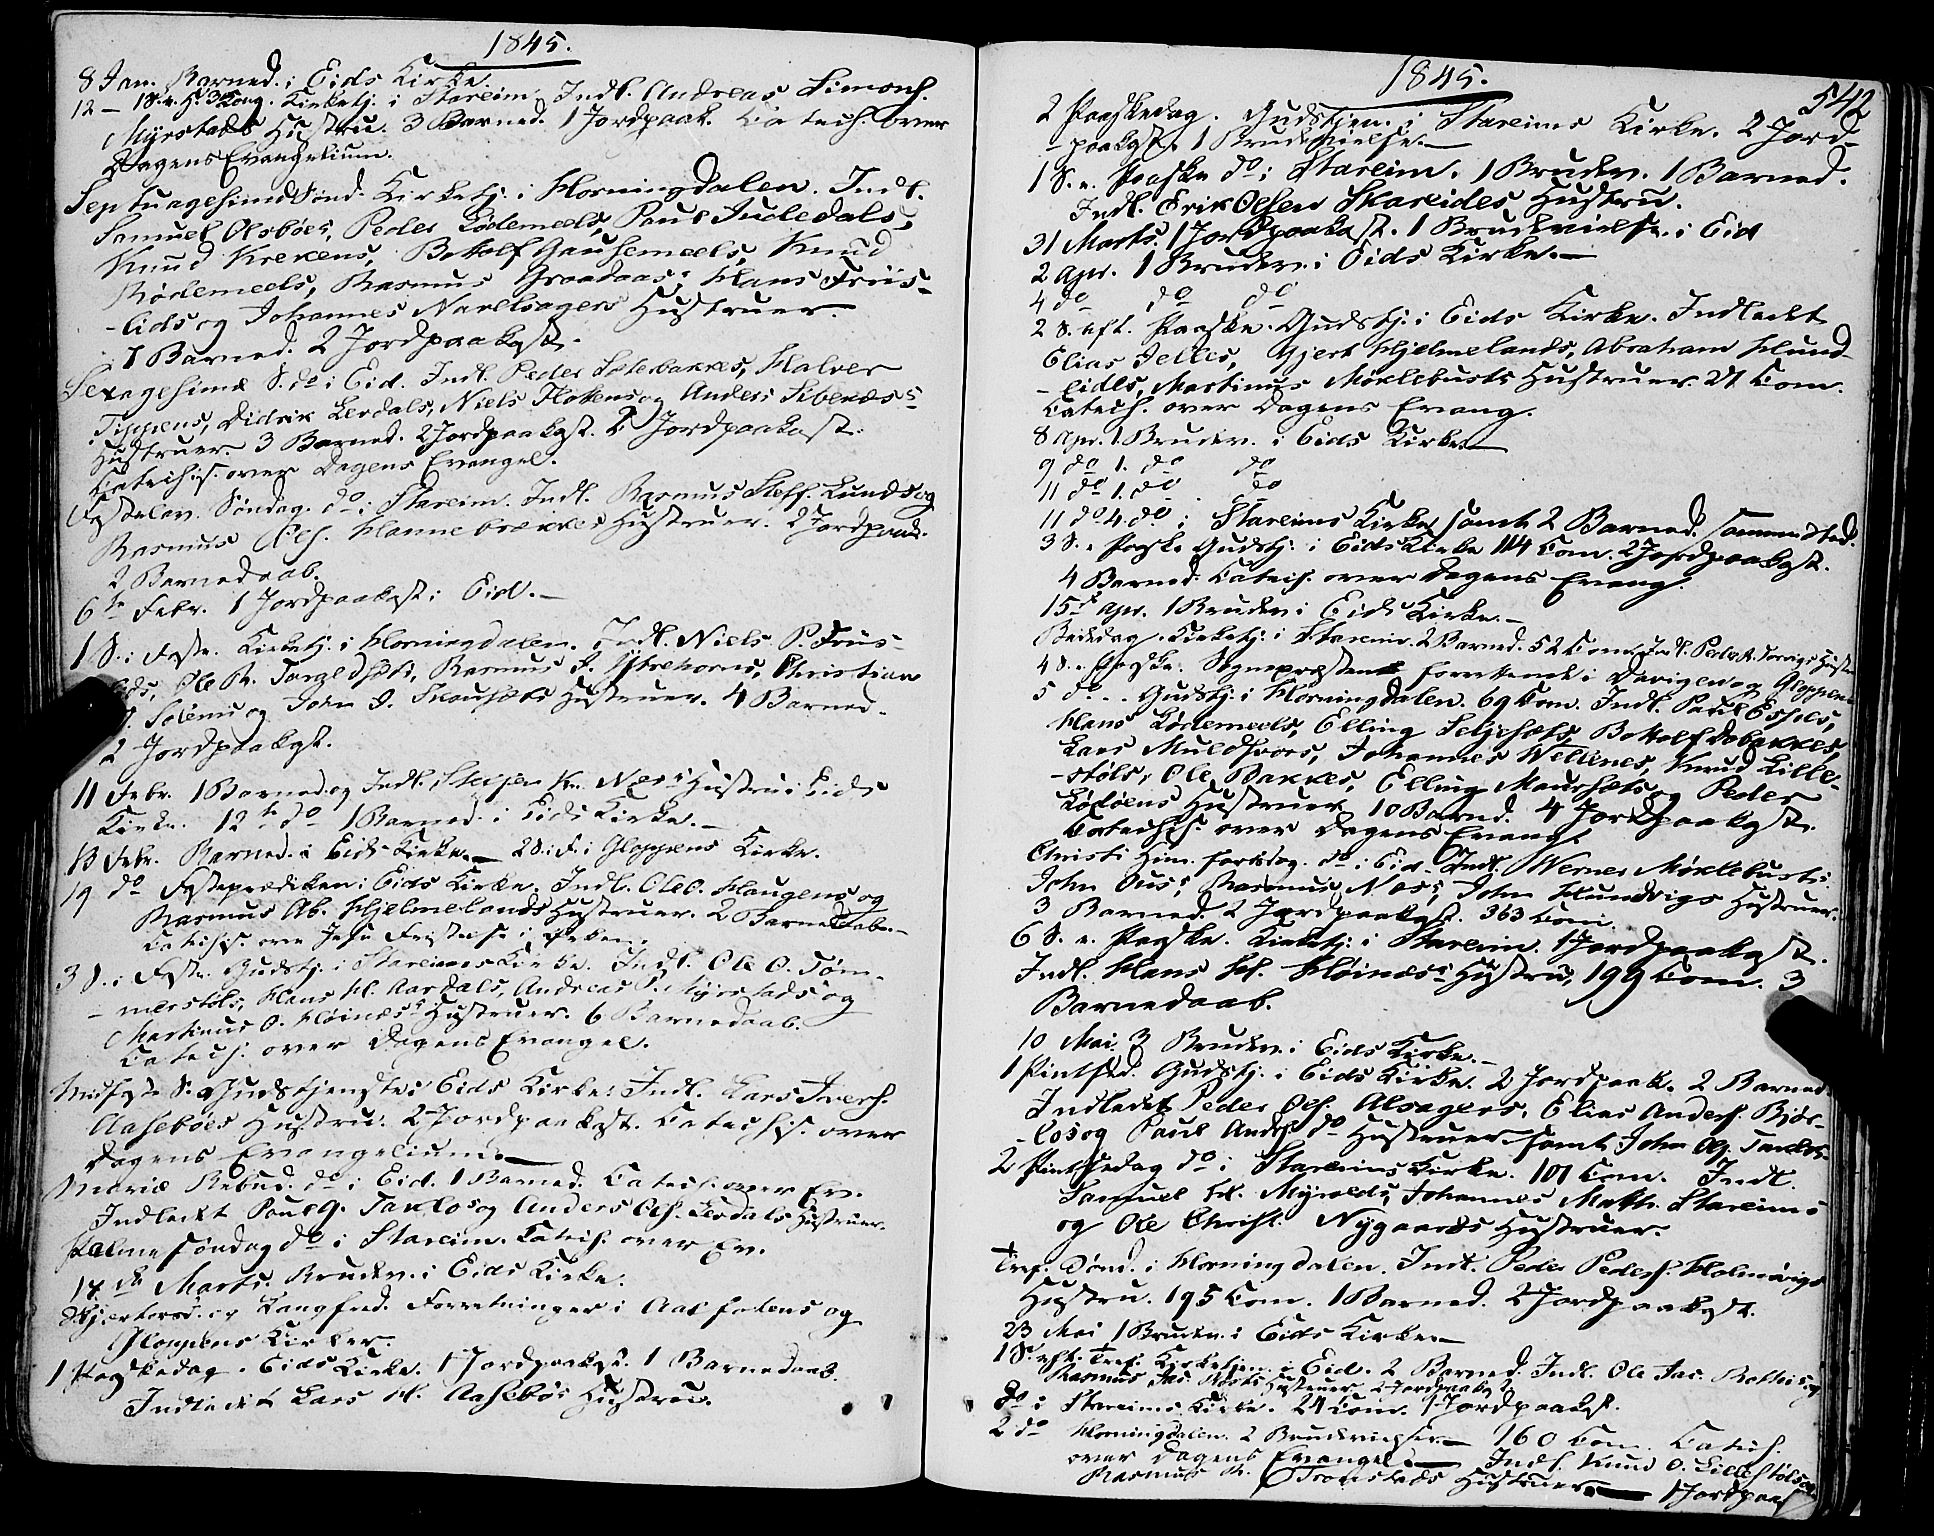 1845.
8 Jan. Barned. i Eids Kirke.
12 – 1 S. e. H. 3 Kong. Kirketj. i Stareim Indl. Andreas Simons.
Myrstads Hustru. 3 Barned. 1 Jordpaak. Catech. over
Dagens Evangelium.
Septuagesima Sønd. Kirketj. i Horningdalen. Indl.
Samuel Otsbøes, Peder Lødemeels, Paul Indledals,
Knud Krekens, Bottolf Gausemeels, Knud
Rødemeels, Rasmus Graadaas, Hans Friis-
-lids og Johannes Navelsagers Hustruer.
1 Barned. 2 Jordpaakast.
Sexagesima S. do i Eid. Indl. Peder Sæterbakkes, Halver
Tippens, Didrik Lerdals, Niels Flotens og Anders Sibenæs
Hustruer. 3 Barned. 2 Jordpaakast. 2 Jordpaakast.
Catechis. over Dagens Evangel.
Fastelav. Søndag. do i Stareim. Indl. Rasmus Steff. Lunds og
Rasmus Ols. Hannebrækkes Hustruer. 2 Jordpaak.
2 Barnedaab.
6te Febr. 1 Jordpaakast i Eid.
1 S. i Faste. Kirketj. i Horningdalen. Indl. Niels P. Friis-
lids, Ole R. Torgeldsæt, Rasmus J. Ytrehorns, Christian
Solems og John J. Skausæts Hustruer. 4 Barned.
2 Jordpaakast.
11 Febr. 1 Barned. og Indl. Steffen Kn. Næs Hustru i Eids
Kirke. 12te do 1 Barned. i Eids Kirke.
13 Febr. Barned. i Eids Kirke. 2 S. i F. i Gloppens Kirke.
19 do Fasteprædiken i Eids Kirke. Indl. Ole O. Haugens og
Rasmus Ab. Hjelmelands Hustruer. 2 Barnedaab.
Catechis. over Jesu Fristelse i Ørken.
3 S. i Faste. Gudstj. i Stareims Kirke. Indl. Ole O. Tøm-
-merstøls, Hans H. Aardals, Andreas S. Myrstads og
Martinus O. Høinæs Hustruer. 6 Barnedaab.
Catech. over Dagens Evangel.
Midfaste S. Gudstjeneste i Eids Kirke. Indl. Lars Ivers.
Aasebøes Hustru. 2 Jordpaakast. Catechis. over
Dagens Evangelium.
Mariæ Bebud. do i Eid. 1 Barned. Catech. over Ev.
Indledet Paul G. Taklos og Anders Ols. Lerdals Hustruer.
Palme Søndag do i Stareim. Catech. over Ev.
17de Marts. Brudev. i Eids Kirke.
Skjertorsd. og Langfred. Forretninger i Aalfodens og
Gloppens Kirker.
1 Paaskedag. Eids Kirke. 1 Jordpaakast. 1 Barnedaab.
Indledet Lars H. Aasebøs Hustru.
1845.
542
2 Paaskedag. Gudstjen. i Stareims Kirke. 2 Jord-
paakast. 1 Brudevielse.
1 S. e. Paaske do i Stareim. 1 Brudev. 1 Barned.
Indl. Erik Olsen Skareides Hustru.
31 Marts. 1 Jordpaakast. 1 Brudevielse i Eid
2 Apr. 1 Brudev. i Eids Kirke.
4 do do do
2 S. eft. Paaske. Gudstj. i Eids Kirke. Indledet
Elias Jelles, Gjert Hjelmelands, Abraham Hund-
-eides, Martinus Møklebusts Hustruer. 21 Com.
Catech. over Dagens Evang.
8 Apr. 1 Brudev. i Eids Kirke.
9 do 1. do do
11 do 1. do do
11 do 4 do i Stareims Kirke samt 2 Barned. sammested.
3 S. e. Paaske Gudstj. i Eids Kirke 114 Com. 2 Jordpaakast.
4 Barned. Catech. over Dagens Evang.
15de Apr. 1 Brudev. i Eids Kirke.
Bededag. Kirketj. i Stareim. 2 Barned. 52 Com. Indl. Peder A. Torvigs Hustru
4 S. e. Paaske. Sognepræsten forrettede i Davigen og Gloppen
5 do. Gudstj. i Horningdalen. 69 Com. Indl. Paul Espes,
Hans Lødemeels, Elling Seljesæts, Bottolf Dybakkes,
Lars Muldsvors, Johannes Nellenes, Knud Lille-
-støls, Ole Bakkes, Elling Maursæts og Peder
Lødøens Hustruer 10 Barned. 4 Jordpaakast.
Catechis. over Dagens Evang.
Christi Him. fartsdag. do i Eid. Indl. Werner Møklebusts
John Ous, Rasmus Næs, John Hundvigs Hustruer.
3 Barned. 2 Jordpaakast. 363 Com.
6 S. e. Paaske. Kirketj. i Stareim. 1 Jordpaakast.
Indl. Hans H. Høinæs Hustru, 199 Com. 3
Barnedaab.
10 Mai 3 Brudev. i Eids Kirke.
1 Pintsed. Gudstj. i Eids Kirke. 2 Jordpaak. 2 Barned.
Indledet Peder Ols. Alsagers, Elias Anders. Bjør-
-los og Paul Anders. do Hustruer samt John Ol. Taklos
2 Pintsedag do i Stareims Kirke. 101 Com. Indl.
Samuel H. Myrolds, Johannes Math. Stareims
og Ole Christ. Nygaards Hustruer.
Tref. Sønd. i Horningdalen. Indl. Peder Peders. Holmøvigs
Hustru. 195 Com. 1 Barned. 2 Jordpaakast.
23 Mai 1 Brudev. i Eids Kirke.
1 S. eft. Tref. Kirketjen. i Eid. 2 Barned. Indl. Ole Jac. og
Rasmus Jac. Hustruer. 2 Jordpaakast.
do i Stareims Kirke. 21 Com. 1 Jordpaakast.
2 do Horningdalen. 2 Brudevielser. 160 Com. Catech.
over Dagens Evangel. Indl. Knud O. Lillestøls og
Rasmus R. Tronstads Hustruer. 1 Jordpaak.